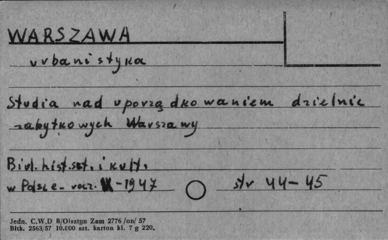 WARSZAWA
urbanistyka
Studia nad uporządkowaniem dzielnic
zabytkowych Warszawy
Biul. hist. szt. i kult.
w Polsce - rocz. -1947 str 44-45
Jedn. C.W.D 8/Olsztyn Zam 2776 /on/ 57
Bitk. 2563/57 10.000 szt. karton kl. 7 g 220.